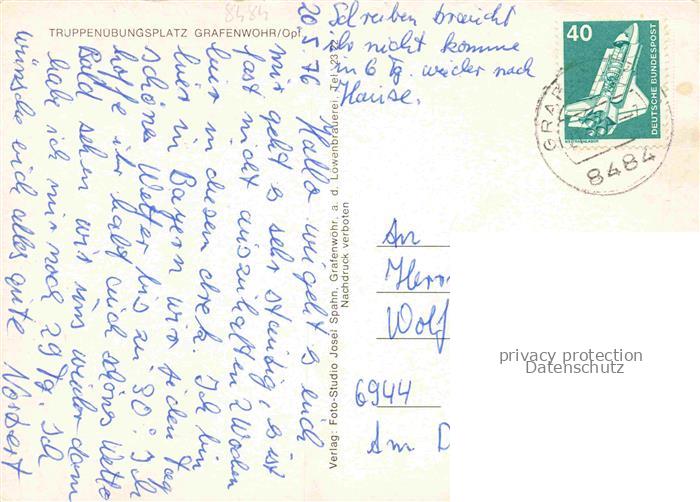 8484
TRUPPENÜBUNGSPLATZ GRAFENWÖHR/Opf.
20.5.76 Hallo wie geht es euch
mir geht es sehr staubig, es ist
fast nicht auszuhalten 2 Wochen
hier in diesem dreck. Ich bin
hier in Bayern wir jeden Tag
schönes Wetter bis zu 30° Ich
hoffe ihr habt auch schönes Wette
Bald sehen wir uns wieder dann
habe ich nur noch 29 Tg. Ich
wünsche euch alles gute Norbert
Schreiben braucht
ihr nicht komme
in 6 Tg. wieder nach
Hause.
Verlag: Foto-Studio Josef Spahn, Grafenwöhr, a. d. Löwenbrauerei, Tel. 2372
Nachdruck verboten
40
DEUTSCHE BUNDESPOST
WELTRAUMLABOR
GRAF
8484
An
Herr
Wolf
6944
Am D
privacy protection
Datenschutz